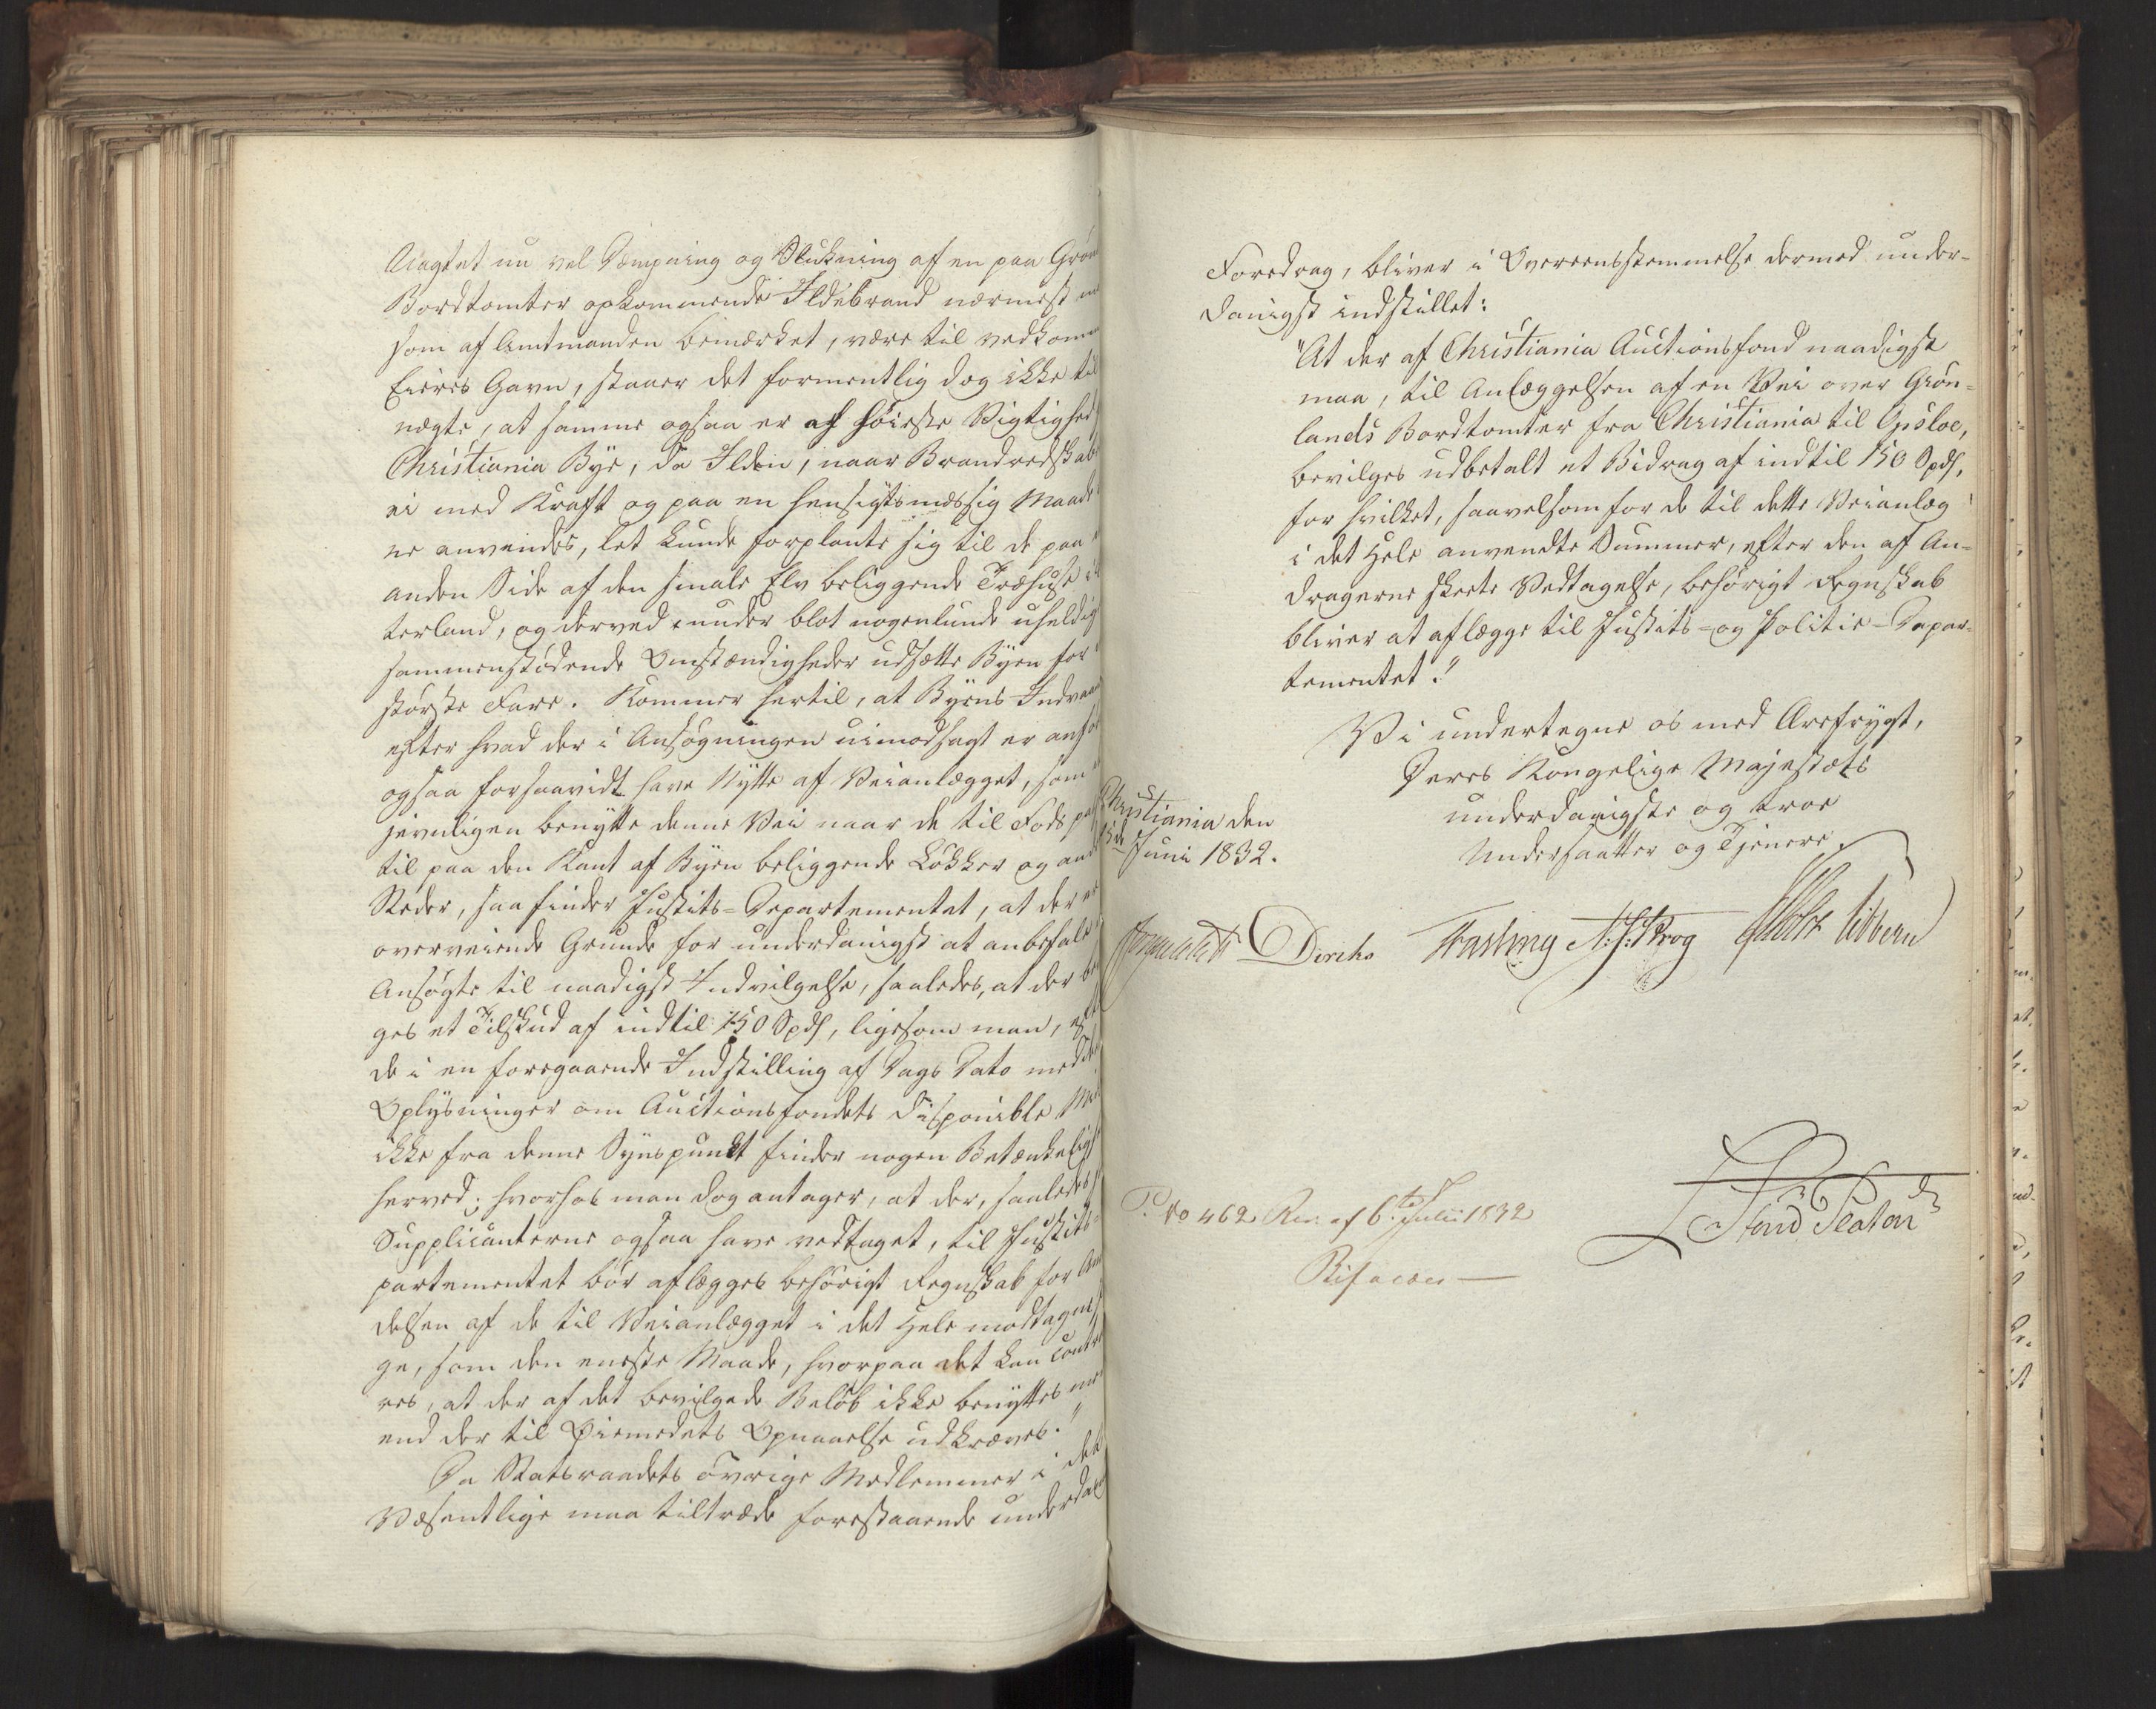 Uagtet nu vel Dæmpning og Slukning af en paa Grøn
Bordtomter opkommende Ildebrand nærmest m
som af Amtmanden bemærket, være til vedkomm
Eieres Gavn, staaer det formentlig dog ikke til
nægte, at samme ogsaa er af høieste Vigtighed
Christiania Bye, da Ilden, naar Brandredskab
ei med Kraft og paa en hensigtsmæssig Maade
ne anvendes, let kunde forplante sig til de paa
anden Side af den smale Elv beliggende Træhuse i
terland, og derved under blot nogenlunde uheldig
sammenstødende Omstændigheder udsætte Byen for
største Fare. Kommer hertil, at Byens Indvaan
efter hvad der i Ansøgningen uimodsagt er anfø
ogsaa forsaavidt have Nytte af Veianlægget, som
jevnligen benytte denne Vei naar de til Fods pas
til paa den Kant af Byen beliggende Løkker og and
Steder, saa finder Justits-Departementet, at der er
overveiende Grunde for underdanigst at anbefale
Ansøgte til naadigst Indvilgelse, saaledes, at der be
ges et Tilskud af indtil 150 Spd, ligesom man, eft
de i en foregaaende Indstilling af Dags Dato medde
Oplysninger om Auctionsfondets disponible Mid
ikke fra denne Synspunkt finder nogen Betænkeligh
herved; hvorhos man dog antager, at der, saaledes
Supplicanterne ogsaa have vedtaget, til Justits-
partementet bør aflægges behørigt Regnskab for An
delsen af de til Veianlægget i det Hele modtagne
ge, som den eneste Maade, hvorpaa det kan contr
res, at der af det bevilgede Beløb ikke benyttes me
end der til Øiemedets Opnaaelse udkræves."
Da Statsraadets øvrige Medlemmer i det
Væsentlige maa tiltræde forestaaende underdan
Foredrag, bliver i Overeensstemmelse dermed under-
danigst indstillet:
"At der af Christiania Auctionsfond naadigst
maa, til Anlæggelsen af en Vei over Grøn-
lands Bordtomter fra Christiania til Opsloe,
bevilges udbetalt et Bidrag af indtil 150 Spd,
for hvilket, saavelsom for de til dette Veianlæg
i det Hele anvendte Summer, efter den af An-
dragerne skeete Vedtagelse, behørigt Regnskab
bliver at aflægge til Justits- og Politie-Depar-
tementet."
Vi undertegne os med Ærefrygt,
Deres Kongelige Majestæts
underdanigste og troe
Undersaatter og Tjenere.
Christiania den
15de Juni 1832.
Diriks Fasting Krog Holst Vibern
P. No 462 Res. af 6te Julii 1832
Bifaldes —